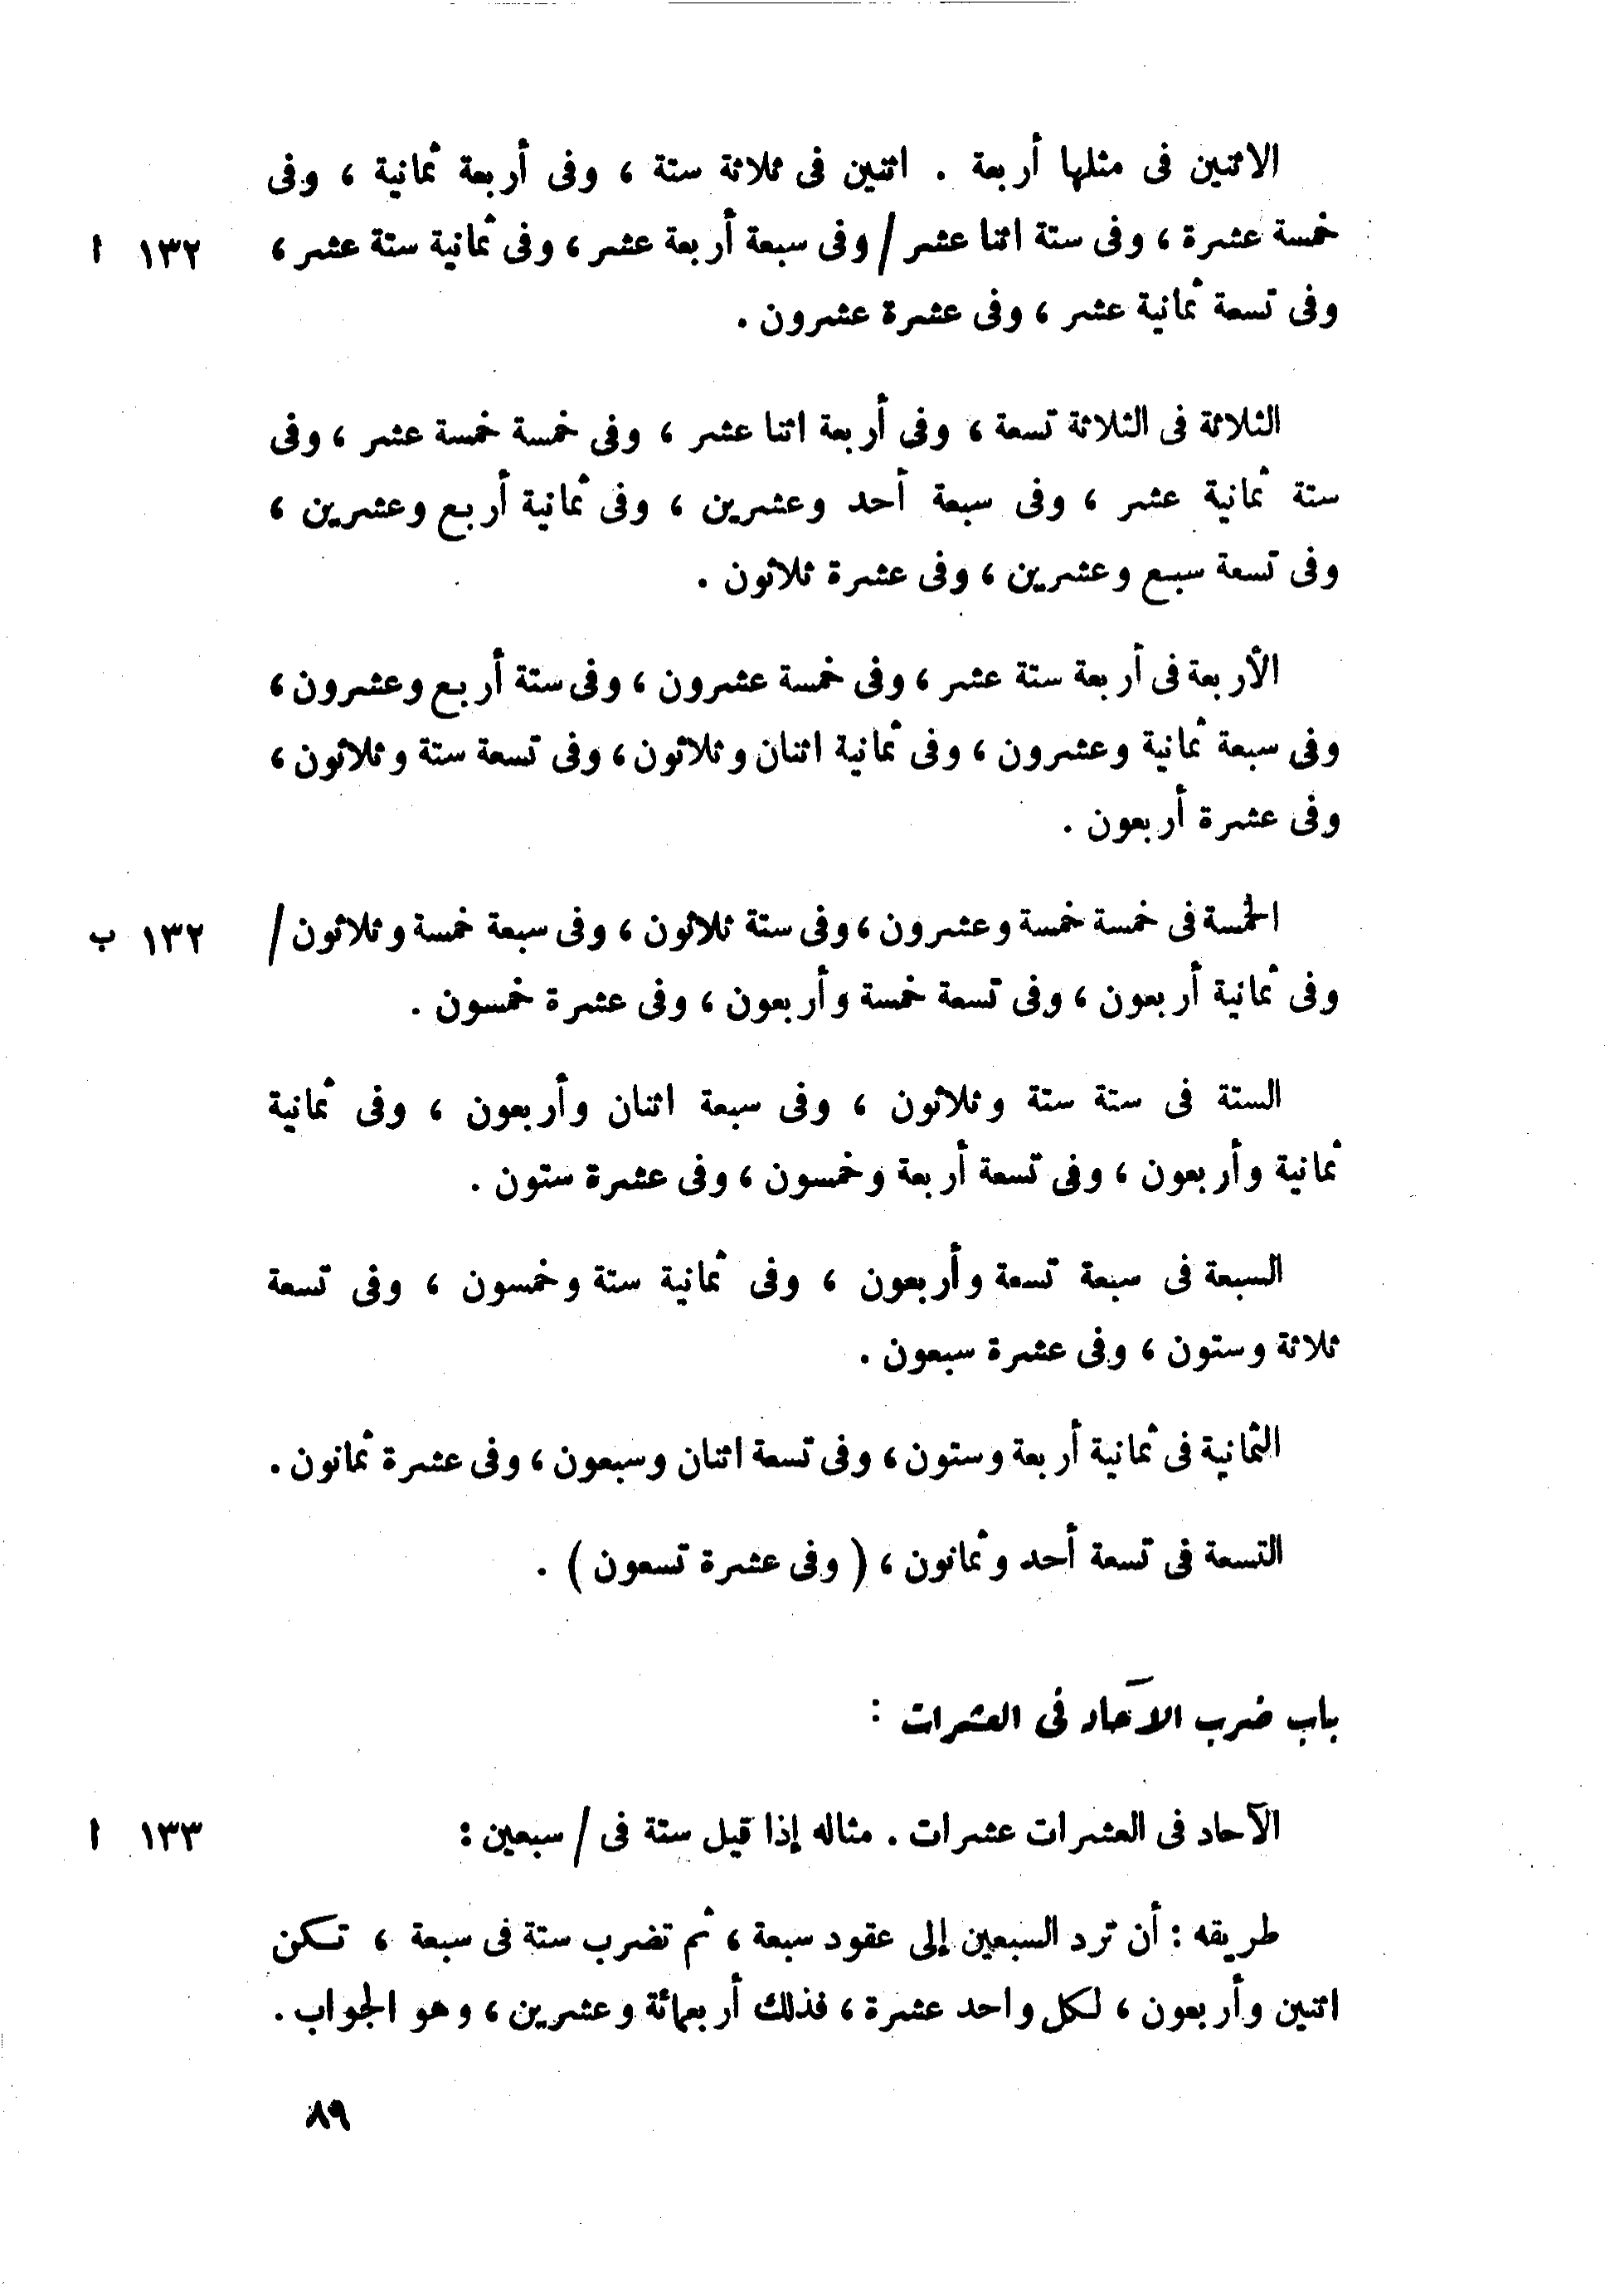 الاثنين فى مثلها أربعة . اثنين فى ثلاثة ستة ، وفى أربعة ثمانية ، وفى
خمسة عشرة ، وفى ستة اثنا عشر / وفى سبعة أربعة عشر ، وفى ثمانية ستة عشر ، ١٣٢ ا
وفى تسعة ثمانية عشر ، وفى عشرة عشرون .
الثلاثة فى الثلاثة تسعة ، وفى أربعة اثنا عشر ، وفى خمسة خمسة عشر ، وفى
ستة ثمانية عشر ، وفى سبعة أحد وعشرين ، وفى ثمانية أربع وعشرين ،
وفى تسعة سبع وعشرين ، وفى عشرة ثلاثون .
الأربعة فى أربعة ستة عشر ، وفى خمسة عشرون ، وفى ستة أربع وعشرون ،
وفى سبعة ثمانية وعشرون ، وفى ثمانية اثنان وثلاثون ، وفى تسعة ستة وثلاثون ،
وفى عشرة أربعون .
الخمسة فى خمسة خمسة وعشرون ، وفى ستة ثلاثون ، وفى سبعة خمسة وثلاثون / ١٣٢ ب
وفى ثمانية أربعون ، وفى تسعة خمسة وأربعون ، وفى عشرة خمسون .
الستة فى ستة ستة وثلاثون ، وفى سبعة اثنان وأربعون ، وفى ثمانية
ثمانية وأربعون ، وفى تسعة أربعة وخمسون ، وفى عشرة ستون .
السبعة فى سبعة تسعة وأربعون ، وفى ثمانية ستة وخمسون ، وفى تسعة
ثلاثة وستون ، وفى عشرة سبعون .
الثمانية فى ثمانية أربعة وستون ، وفى تسعة اثنان وسبعون ، وفى عشرة ثمانون .
التسعة فى تسعة أحد وثمانون ، ( وفى عشرة تسعون ) .
باب ضرب الآحاد فى العشرات :
الآحاد فى العشرات عشرات . مثاله إذا قيل ستة فى / سبعين : ١٣٣ ا
طريقه : أن ترد السبعين إلى عقود سبعة ، ثم تضرب ستة فى سبعة ، تكن
اثنين وأربعون ، لكل واحد عشرة ، فذلك أربعمائة وعشرين ، وهو الجواب .
٨٩